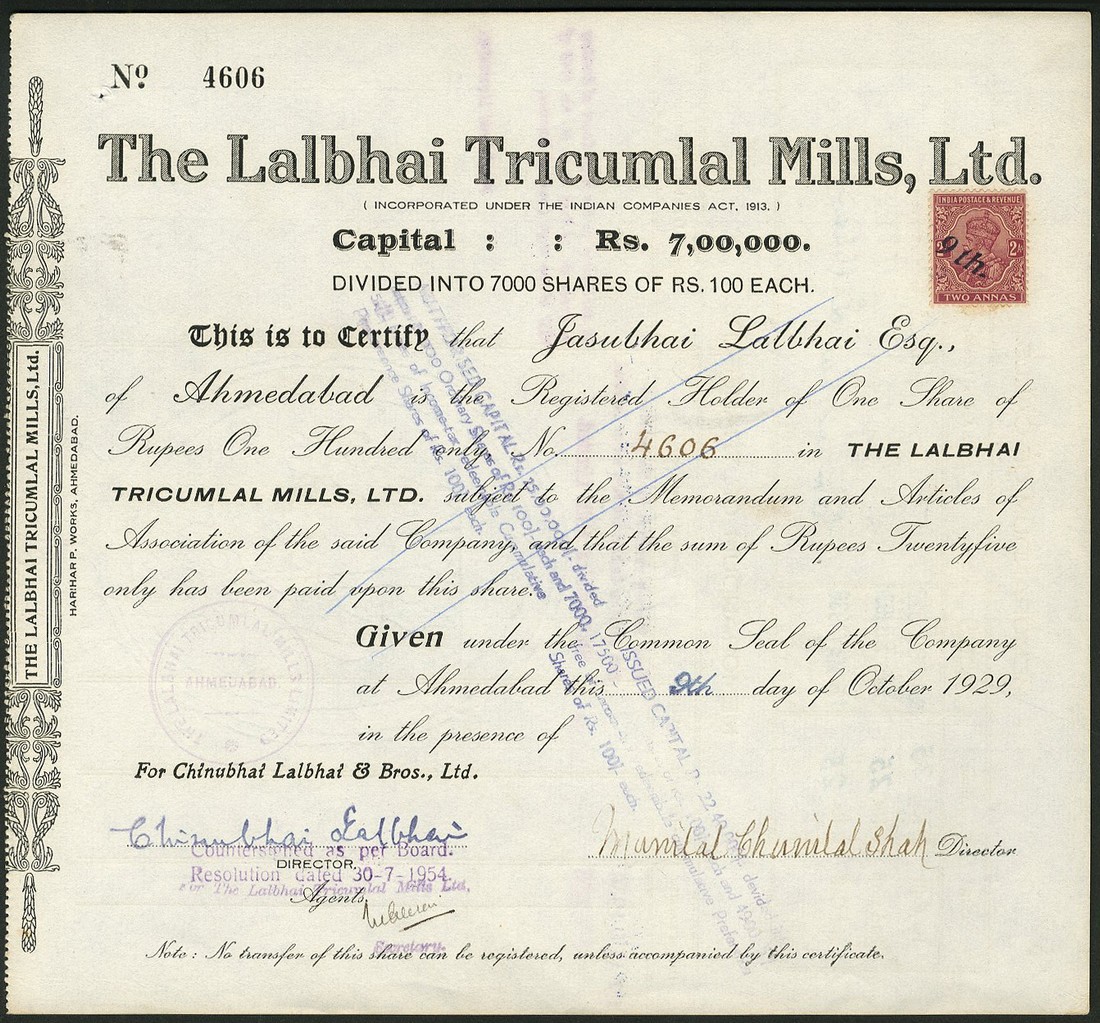 Nº 4606
The Lalbhai Tricumlal Mills, Ltd.
( INCORPORATED UNDER THE INDIAN COMPANIES ACT, 1913. )
INDIA POSTAGE & REVENUE
2 9th. 2
TWO ANNAS
Capital : : Rs. 7,00,000.
DIVIDED INTO 7000 SHARES OF RS. 100 EACH.
This is to Certify that Jasubhai Lalbhai Esq.,
of Ahmedabad is the Registered Holder of One Share of
Rupees One Hundred only No. 4606 in THE LALBHAI
TRICUMLAL MILLS, LTD. subject to the Memorandum and Articles of
Association of the said Company, and that the sum of Rupees Twentyfive
only has been paid vpon this share.
Given under the Common Seal of the Company
at Ahmedabad this 9th day of October 1929,
in the presence of
For Chinubhai Lalbhai & Bros., Ltd.
Chinubhai Lalbhai
DIRECTOR.
Agents
Manilal Chunilal Shah Director
Countersigned as per Board.
Resolution dated 30-7-1954.
For The Lalbhai Tricumlal Mills Ltd.
Secretary.
Note : No transfer of this share can be registered, unless accompanied by this certificate.
THE LALBHAI TRICUMLAL MILLS, Ltd.
HARIHAR P. WORKS, AHMEDABAD.
THE LALBHAI TRICUMLAL MILLS LIMITED
AHMEDABAD.
CAPITAL Rs. divided
Ordinary Shares of Rs. 100/- each and 7000
of Income-tax Cumulative
Preference Shares of Rs. 100/- each.
ISSUED CAPITAL
17500
Shares of Rs. 100/- each.